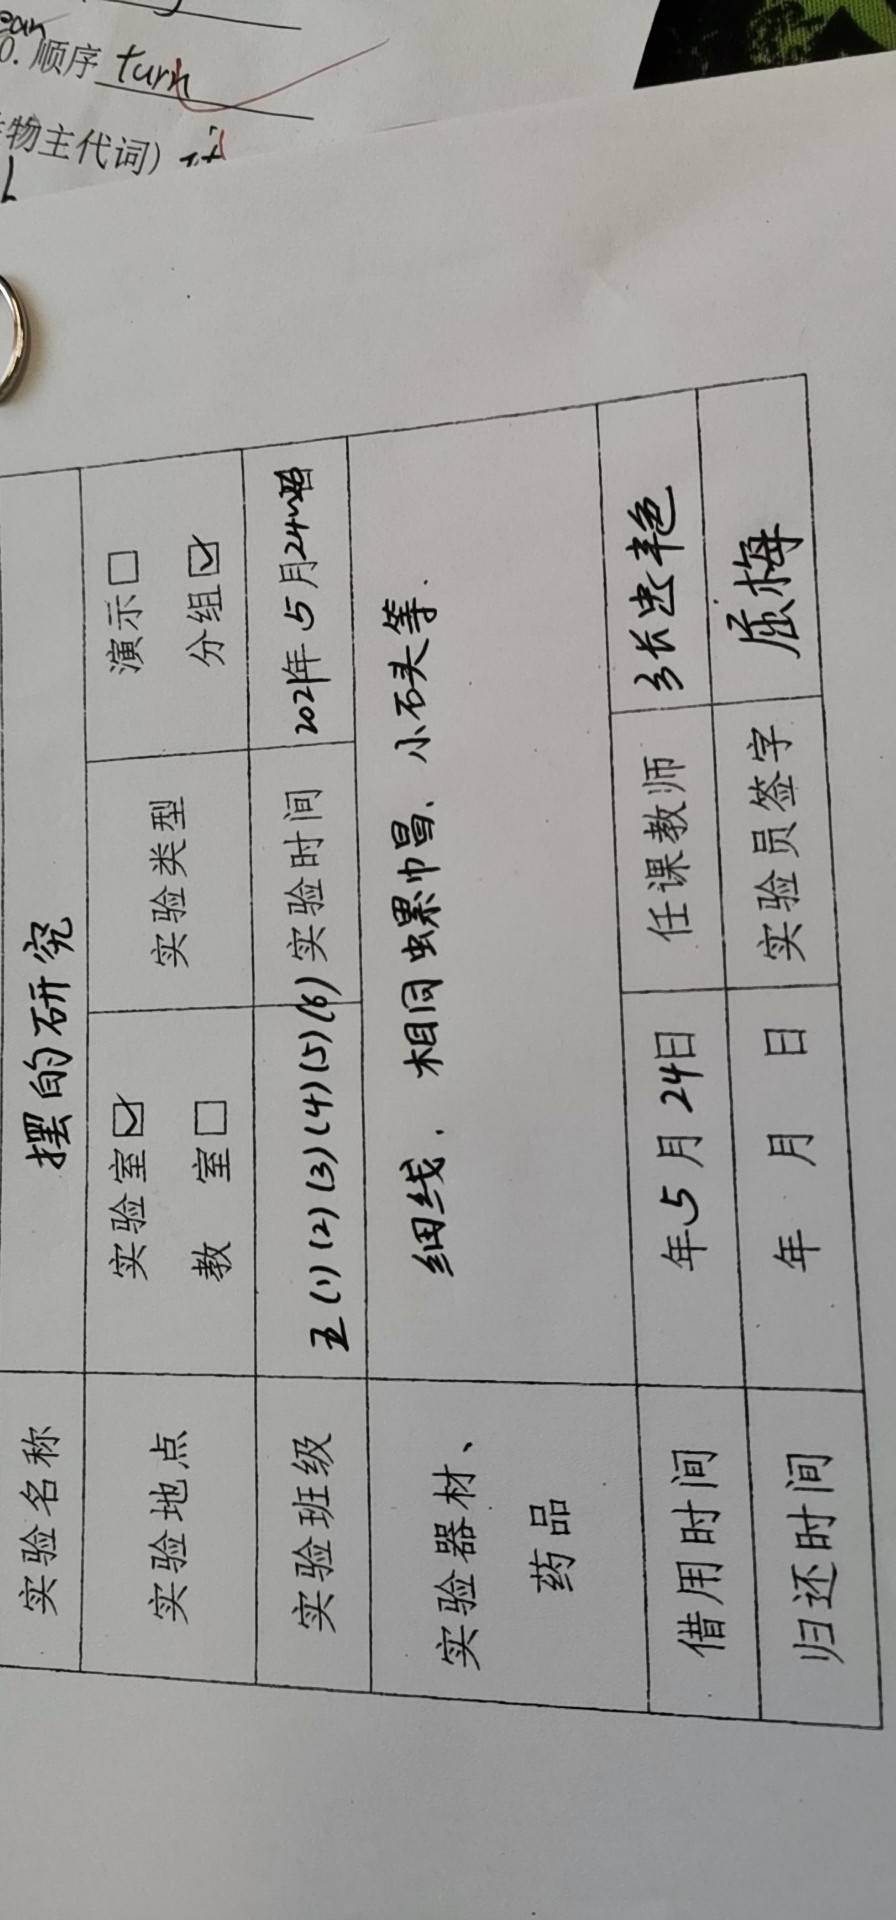 0. 顺序 turn
物主代词) it
实验名称 摆的研究
实验地点 实验室☑ 教 室□ 实验类型 演示□ 分组☑
实验班级 五(1)(2)(3)(4)(5)(6) 实验时间 2021年5月24日
实验器材、药品 细线、相同螺帽、小石头等.
借用时间 年5月24日 任课教师 张忠艳
归还时间 年 月 日 实验员签字 屈梅